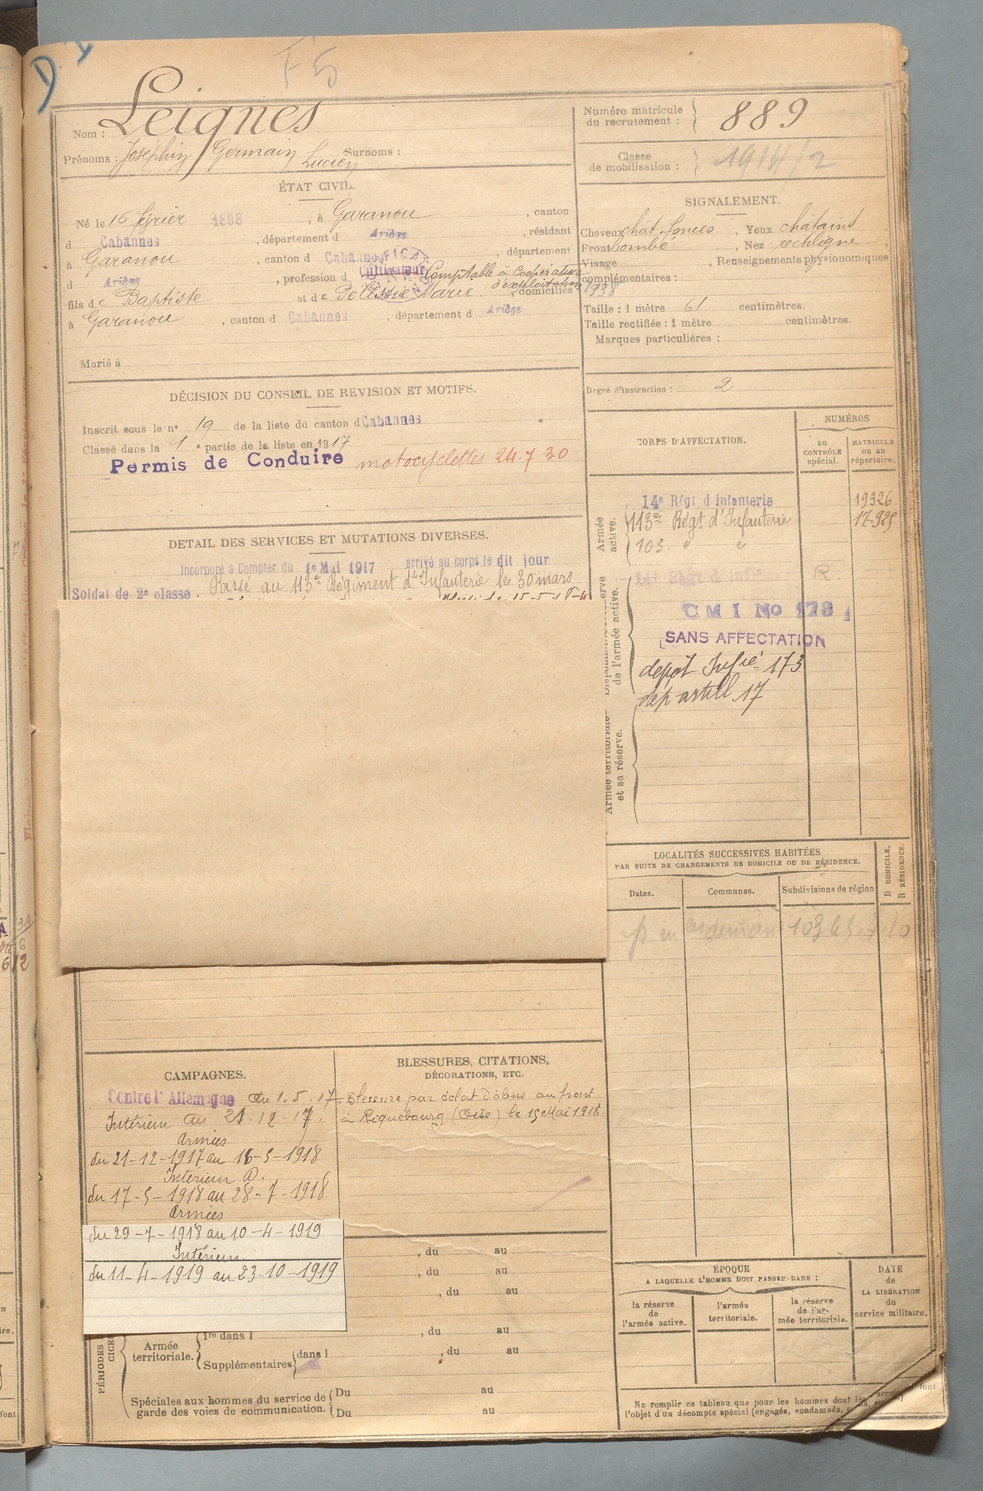 D
F 5
Nom : Leignes
Prénoms : Joséphin Germain Lucien Surnoms :
ÉTAT CIVIL.
Né le 16 février 1898, à Garanou, canton
d Cabannes, département d Ariège, résidant
à Garanou, canton d Cabannes, département
d Ariège, profession d Cultivateur Comptable à Coopérative d'exploitation
fils de Baptiste et de Marie, domiciliés
à Garanou, canton d Cabannes, département d Ariège
Marié à
DÉCISION DU CONSEIL DE REVISION ET MOTIFS.
Inscrit sous le n° 19 de la liste du canton d Cabannes
Classé dans la 1e partie de la liste en 1917
Permis de Conduire motocyclettes 24.7 30
DETAIL DES SERVICES ET MUTATIONS DIVERSES.
Incorporé à Compter du 1e Mai 1917 arrivé au corps le dit jour
Soldat de 2e classe. Passé au 113e Régiment d'Infanterie le 30 mars
Numéro matricule du recrutement : 889
Classe de mobilisation : 1914/2
SIGNALEMENT.
Cheveux chat. foncés. Yeux chatains
Front bombé. Nez rectiligne
Visage. Renseignements physionomiques
complémentaires :
1938
Taille : 1 mètre 61 centimètres.
Taille rectifiée : 1 mètre centimètres.
Marques particulières :
Degré d'instruction : 2
CORPS D'AFFECTATION.
NUMÉROS
AU CONTRÔLE spécial.
MATRICULE ou au répertoire.
Armée active.
14e Régt d Infanterie 19326
113e Régt d'Infanterie 17.925
103 " "
de l'armée active.
14e Régt d Infie R
C M I No 173
SANS AFFECTATION
dépôt Infie 173
dép artill. 17
Armée territoriale et sa réserve.
LOCALITÉS SUCCESSIVES HABITÉES
PAR SUITE DE CHANGEMENTS DE DOMICILE OU DE RÉSIDENCE.
Dates.
Communes.
Subdivisions de région
D DOMICILE.
R RÉSIDENCE.
CAMPAGNES.
Contre l'Allemagne du 1.5.17
Intérieur au 21.12.17.
Armées
du 21-12-1917 au 16-5-1918
Intérieur B.
du 17-5-1918 au 28-7-1918
Armées
du 29-7-1918 au 10-4-1919
Intérieur
du 11-4-1919 au 23-10-1919
BLESSURES, CITATIONS,
DÉCORATIONS, ETC.
Blessure par éclat d'obus au front
à Riquebourg (Oise) le 15 Mai 1918
, du au
, du au
, du au
Armée territoriale.
1re dans l , du au
Supplémentaires dans l , du au
Spéciales aux hommes du service de garde des voies de communication.
Du au
Du au
ÉPOQUE
A LAQUELLE L'HOMME DOIT PASSER DANS :
la réserve de l'armée active.
l'armée territoriale.
la réserve de l'armée territoriale.
DATE DE LA LIBÉRATION du service militaire.
Ne remplir ce tableau que pour les hommes dont les
l'objet d'un décompte spécial (engagés, condamnés,